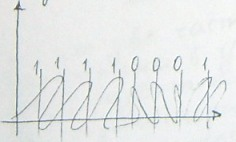 1 1 1 1 0 0 0 1